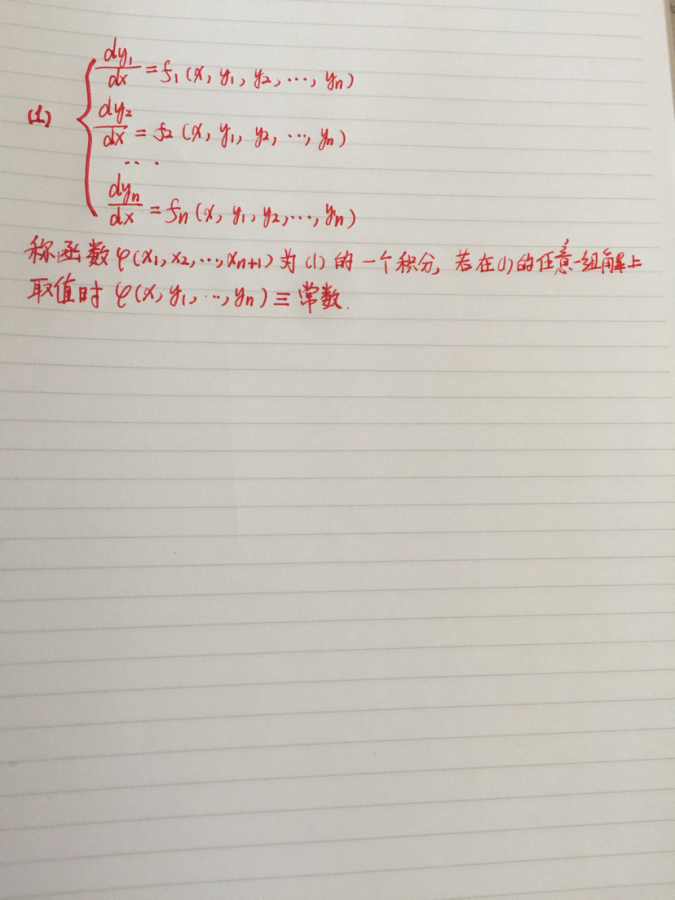 (1) { dy₁/dx = f₁(x, y₁, y₂, …, yₙ)
dy₂/dx = f₂(x, y₁, y₂, …, yₙ)
…
dyₙ/dx = fₙ(x, y₁, y₂, …, yₙ)
称函数 φ(x₁, x₂, …, xₙ₊₁) 为 (1) 的一个积分, 若在(1)的任意一组解上
取值时 φ(x, y₁, …, yₙ) ≡ 常数.